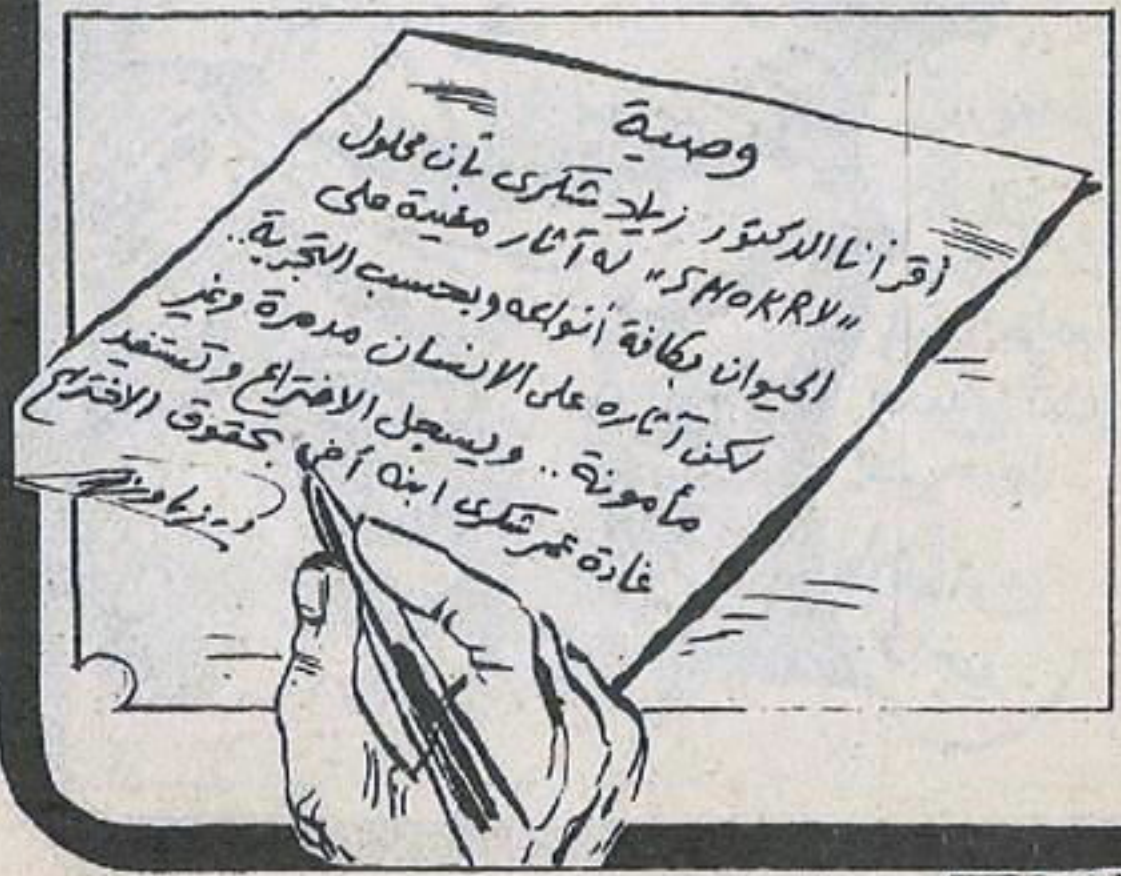 وصية
أقر أنا الدكتور زياد شكرى بأن محلول
"SHOKRY" له آثار مفيدة على
الحيوان بكافة أنواعه وبحسب التجربة..
لكن آثاره على الإنسان مدمرة وغير
مأمونة .. ويسجل الاختراع وتستفيد
غادة عمر شكرى ابنة أخى بحقوق الاختراع
د. زياد